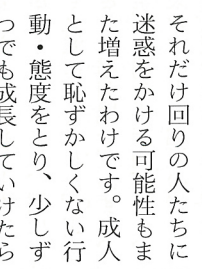 それだけ回りの人たちに
迷惑をかける可能性もま
た増えたわけです。成人
として恥ずかしくない行
動・態度をとり、少しず
つでも成長していけたら